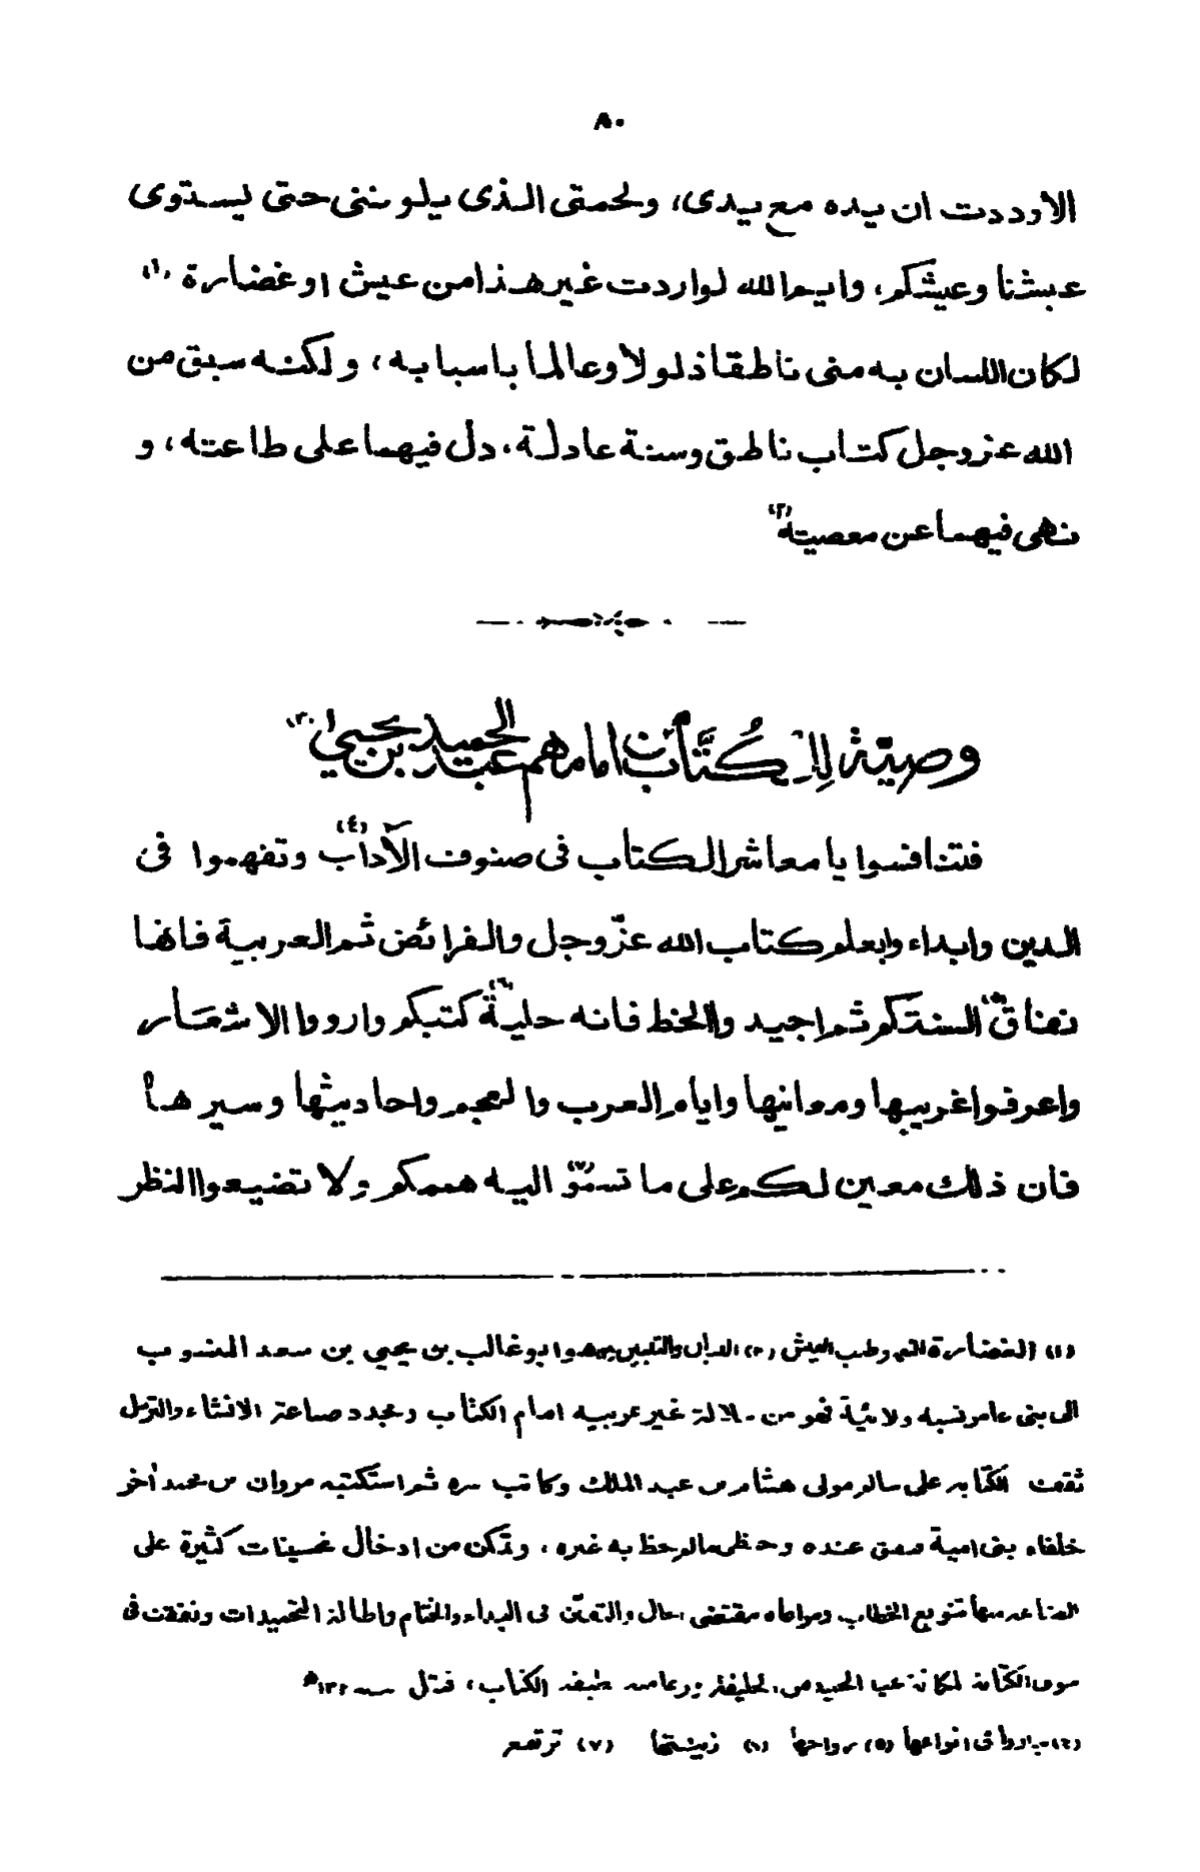 ٨٠
الاوددت ان يده مع يدى، ولحمتى الذى يلوننى حتى يستوى
عيشنا وعيشكم، وايم الله لواردت غير هذا من عيش او غضارة (١)
لكان اللسان به منى ناطقا ذلولا وعالما باسبابه، ولكنه سبق من
الله عز وجل كتاب ناطق وسنة عادلة، دل فيهما على طاعته، و
نهى فيهما عن معصيته (٢)
وصية للكتاب من امامهم عبد الحميد بن يحيى (٣)
فتنافسوا يا معاشر الكتاب فى صنوف الآداب (٤) وتفهموا فى
الدين وابداء وابعلم كتاب الله عزّ وجل والفرائض ثم العربية فانها
نفاق (٥) السنتكم ثم اجيد والخط فانه حلية (٦) كتبكم وارووا الاشعار
واعرفوا غريبها ومعانيها وايام العرب والعجم واحاديثها وسيرها
فان ذلك معين لكم على ما تسمو (٧) اليه هممكم ولا تضيعوا النظر
(١) الغضارة النعم وطيب العيش (٢) البيان والتبيين (٣) هو ابو غالب بن يحيى بن سعد المنسوب
الى بنى عامر نسبه ولائية فهو من سلالة غير عربيه امام الكتاب ومجدد صناعة الانشاء والترسل
ثقف الكتابه على سالم مولى هشام بن عبد الملك وكاتب سره ثم استكتبه مروان بن محمد آخر
خلفاء بنى امية عنده وحظى مالم يحظ به غيره، وتمكن من ادخال تحسينات كثيرة على
الصناعه منها تنويع الخطاب ومراعاه مقتضى الحال والتفنن فى البداء والختام واطالة التحميدات ونفقت فى
سوق الكتابة لمكانة عبد الحميد من الخليفة وزعامته طبقه الكتاب، قتل سنه ١٣٢ه
(٤) انواعها (٥) رواجها (٦) زينتها (٧) ترتفع